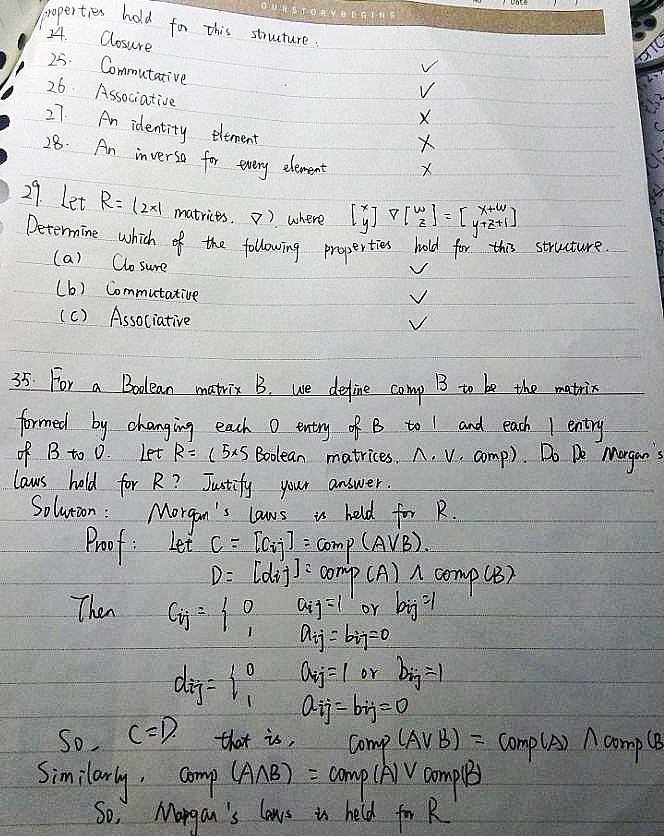 OURSTORYBEGINS
No / Date / /
properties hold for this structure.
24. Closure ✓
25. Commutative ✓
26. Associative ×
27. An identity element ×
28. An inverse for every element ×
29. Let R = (2×1 matrices, ▽), where [x y] ▽ [w z] = [x+w y+z+1]
Determine which of the following properties hold for this structure.
(a) Closure ✓
(b) Commutative ✓
(c) Associative ✓
35. For a Boolean matrix B, we define comp B to be the matrix
formed by changing each 0 entry of B to 1 and each 1 entry
of B to 0. Let R = (5×5 Boolean matrices, ∧, ∨, comp). Do De Morgan's
laws hold for R? Justify your answer.
Solution: Morgan's laws is held for R.
Proof: Let C = [Cij] = comp (A∨B).
D = [dij] = comp (A) ∧ comp (B)
Then Cij = { 0 aij=1 or bij=1
1 aij=bij=0
dij = { 0 aij=1 or bij=1
1 aij=bij=0
So, C=D. that is, comp (A∨B) = comp(A) ∧ comp (B
Similarly, comp (A∧B) = comp(A) ∨ comp(B)
So, Morgan's laws is held for R